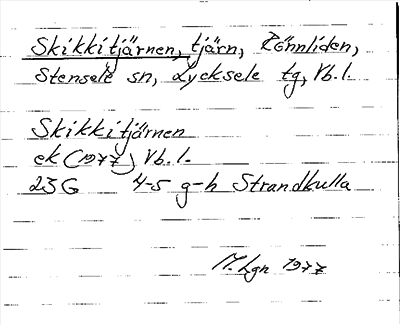 Skikkitjärnen, tjärn, Rönnliden,
Stensele sn, Lycksele tg, Vb.l.
Skikkitjärnen
ek (1977) Vb.l.
23G 4-5 g-h Strandkulla
M.Lgn 1977